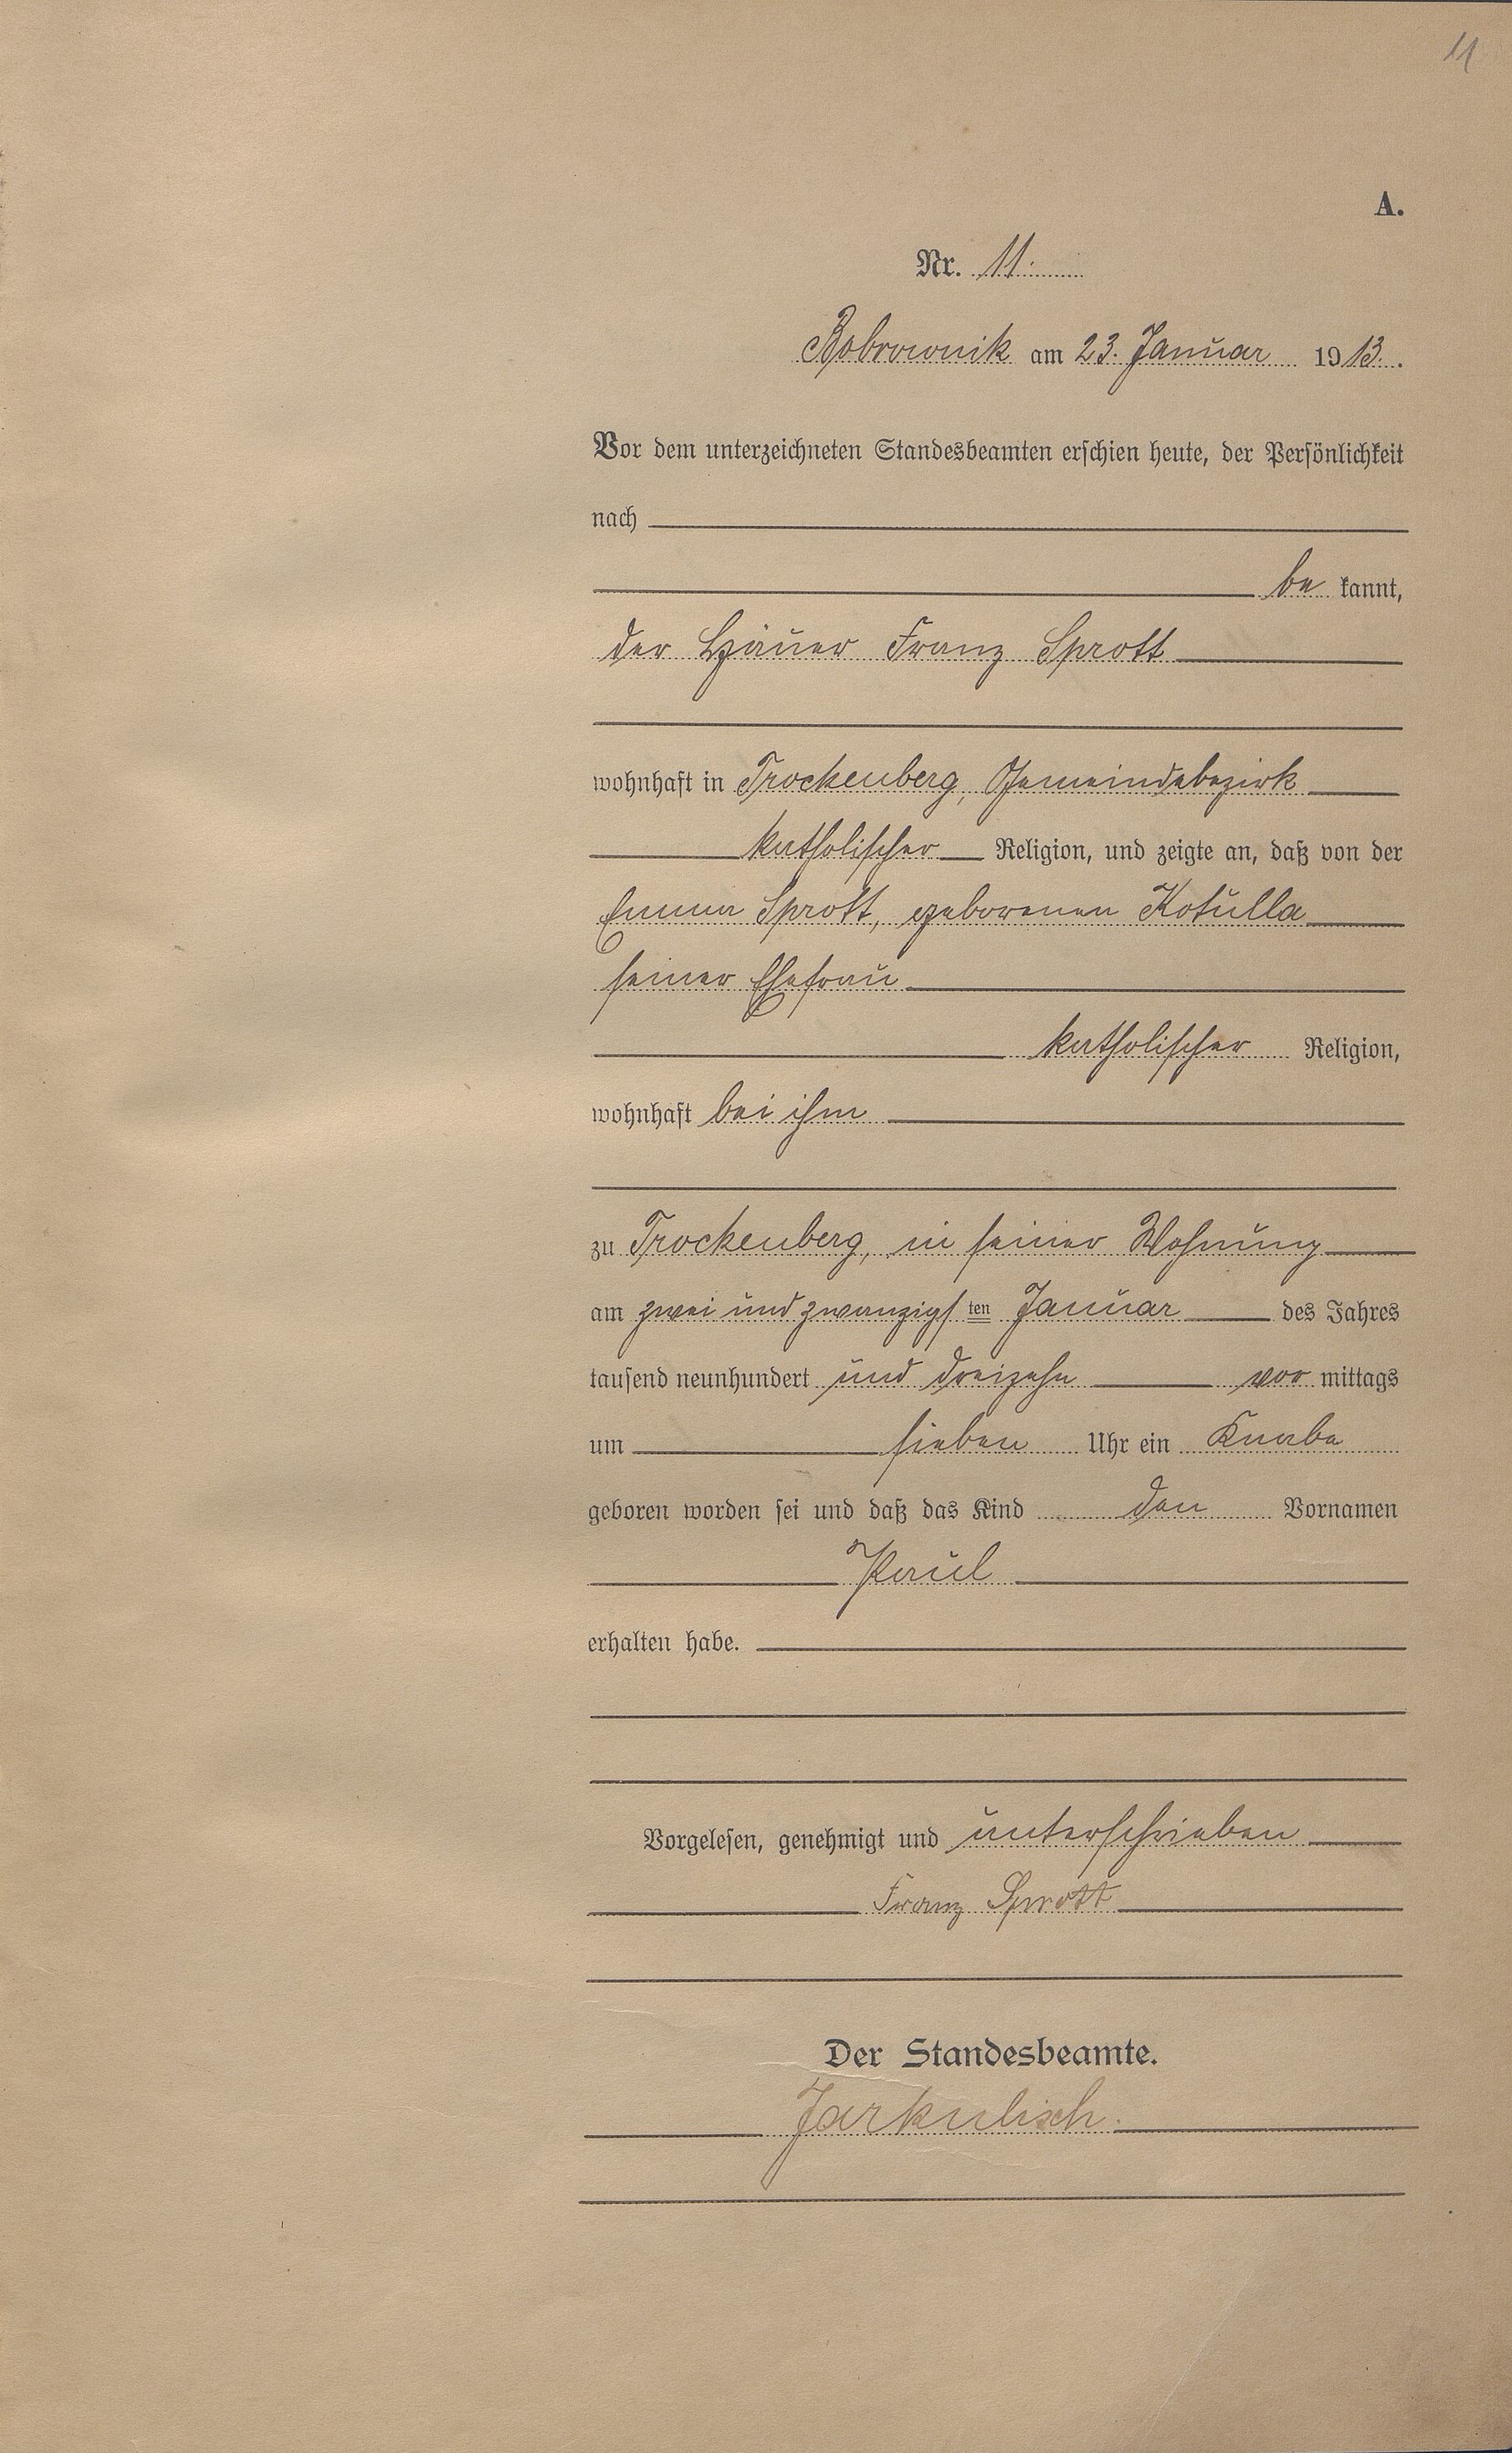 11
A.
Nr. 11.
Bobrownik am 23. Januar 1913.
Vor dem unterzeichneten Standesbeamten erschien heute, der Persönlichkeit
nach
be kannt,
der Häuer Franz Sprott
wohnhaft in Trockenberg, Gemeindebezirk
katholischer Religion, und zeigte an, daß von der
Emma Sprott, geborenen Kotulla
seiner Ehefrau
katholischer Religion,
wohnhaft bei ihm
zu Trockenberg, in seiner Wohnung
am zwei und zwanzigsten Januar des Jahres
tausend neunhundert und dreizehn vor mittags
um sieben Uhr ein Knabe
geboren worden sei und daß das Kind den Vornamen
Paul
erhalten habe.
Vorgelesen, genehmigt und unterschrieben
Franz Sprott
Der Standesbeamte.
Jarkulisch.